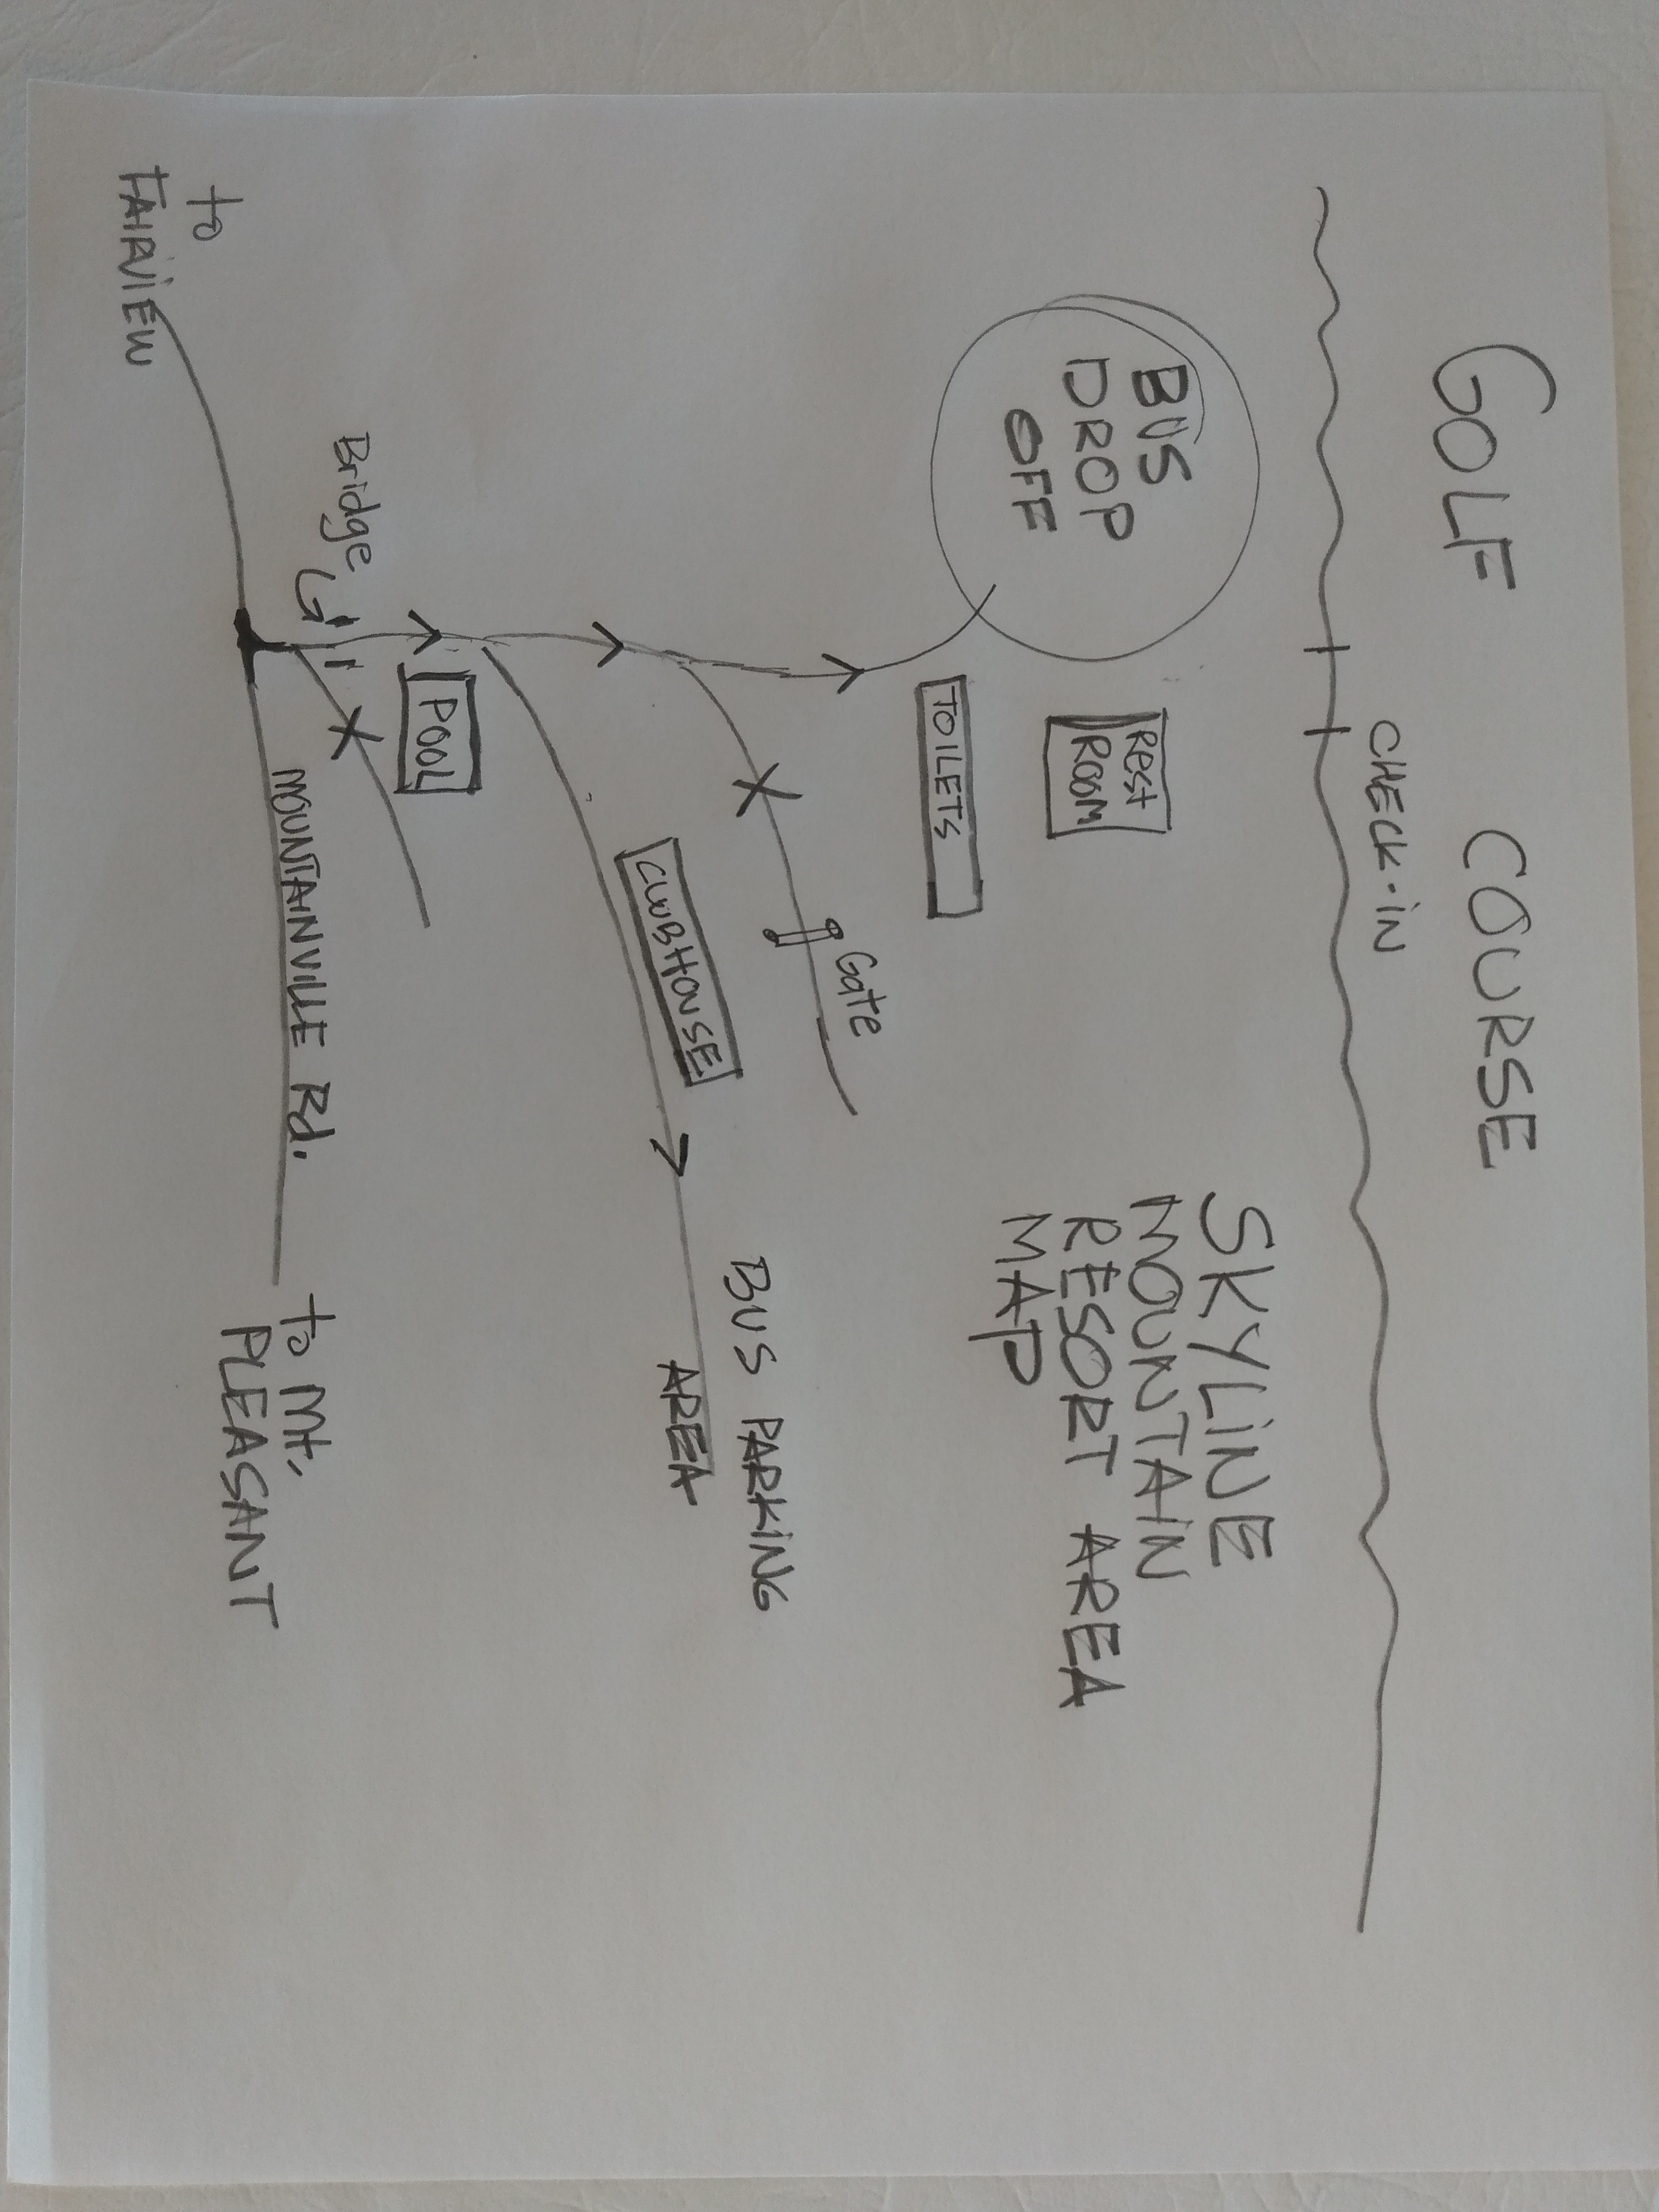 GOLF COURSE
CHECK-IN
BUS
DROP
OFF
REST
ROOM
TOILETS
SKYLINE
MOUNTAIN
RESORT AREA
MAP
Gate
CLUBHOUSE
BUS PARKING
AREA
POOL
Bridge
MOUNTAINVILLE Rd.
to
FAIRVIEW
to Mt.
PLEASANT